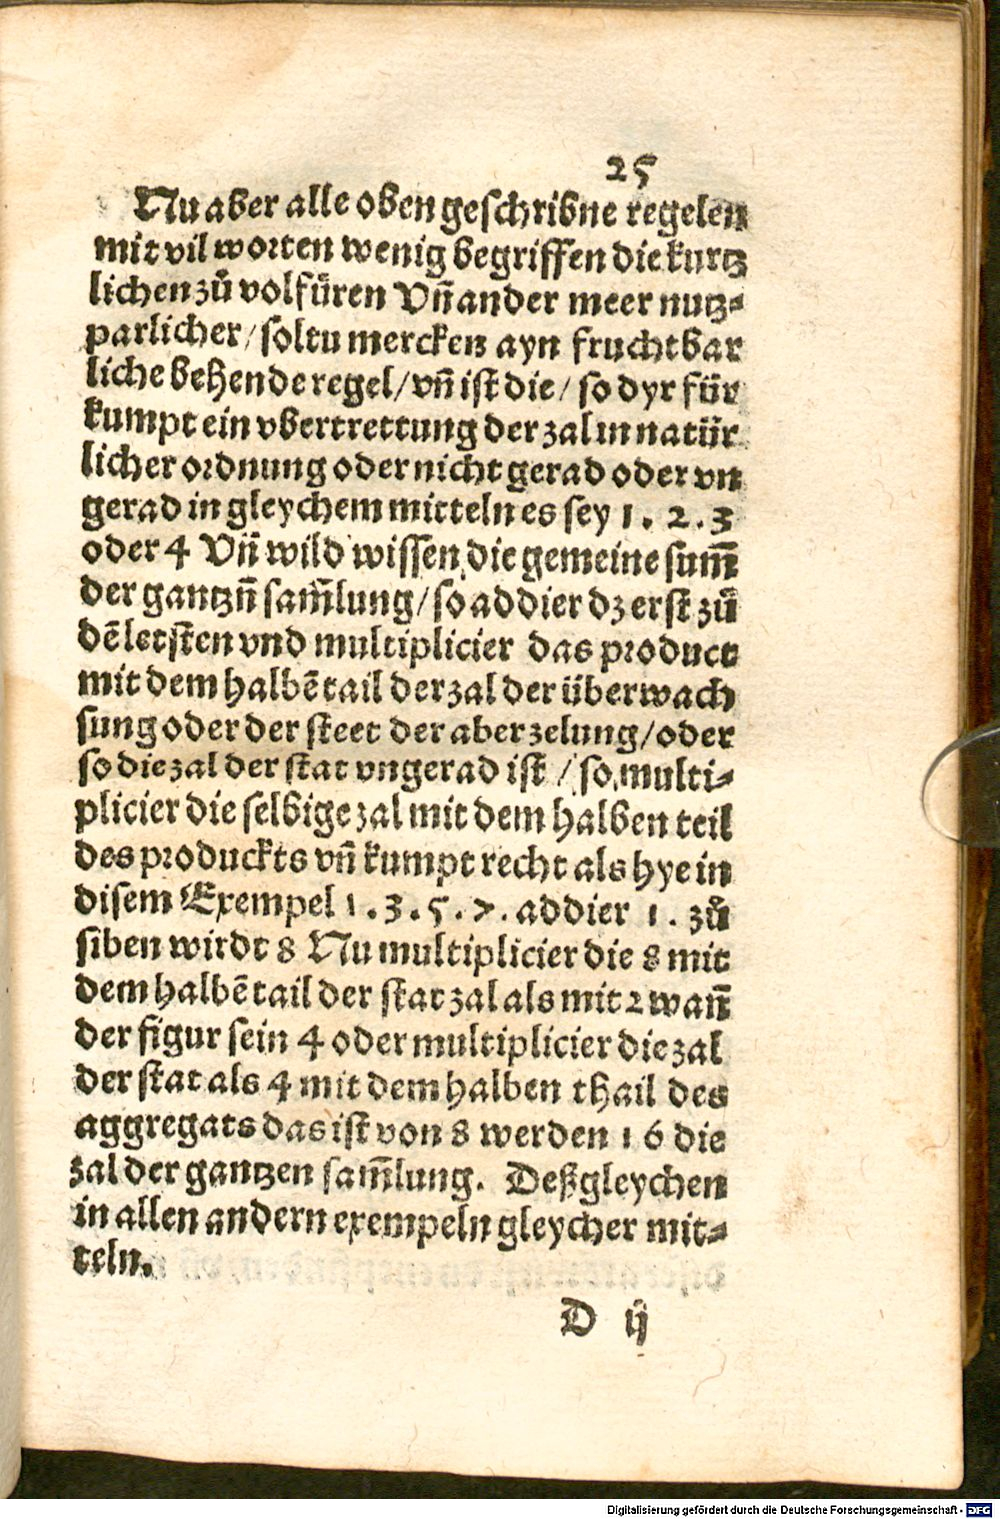 25
Nu aber alle oben geschribne regelen
mit vil worten wenig begriffen die kurtz
lichen zů volfüren Vn̄ ander meer nutz-
parlicher / soltu mercken ayn fruchtbar
liche behende regel / vn̄ ist die / so dyr für
kumpt ein vbertrettung der zal in natür
licher ordnung oder nicht gerad oder vn
gerad in gleychem mitteln es sey 1 . 2 . 3
oder 4 Vn̄ wild wissen die gemeine sum̄
der gantzn̄ sam̄lung / so addier dz erst zů
dē letsten vnd multiplicier das product
mit dem halbē tail der zal der überwach
sung oder der steet der aberzelung / oder
so die zal der stat vngerad ist / so multi-
plicier die selbige zal mit dem halben teil
des produckts vn̄ kumpt recht als hye in
disem Exempel 1 . 3 . 5 . 7 . addier 1 . zů
siben wirdt 8 Nu multiplicier die 8 mit
dem halbē tail der stat zal als mit 2 wan̄
der figur sein 4 oder multiplicier die zal
der stat als 4 mit dem halben thail des
aggregats das ist von 8 werden 16 die
zal der gantzen sam̄lung. Deßgleychen
in allen andern exempeln gleycher mit-
teln.
D ij
Digitalisierung gefördert durch die Deutsche Forschungsgemeinschaft - DFG